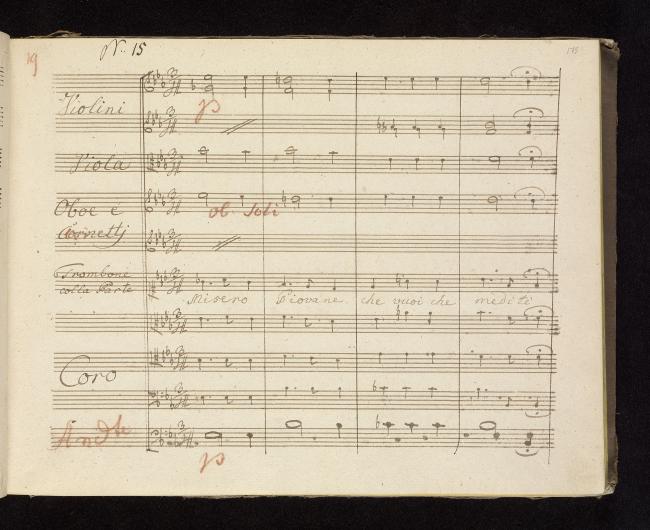 19
Nº 15
Violini
p
Viola
Oboe e
Cornettj
ob. Soli
Trombone
colla Parte
Misero Giovane che vuoi che mediti
Coro
Andte
p